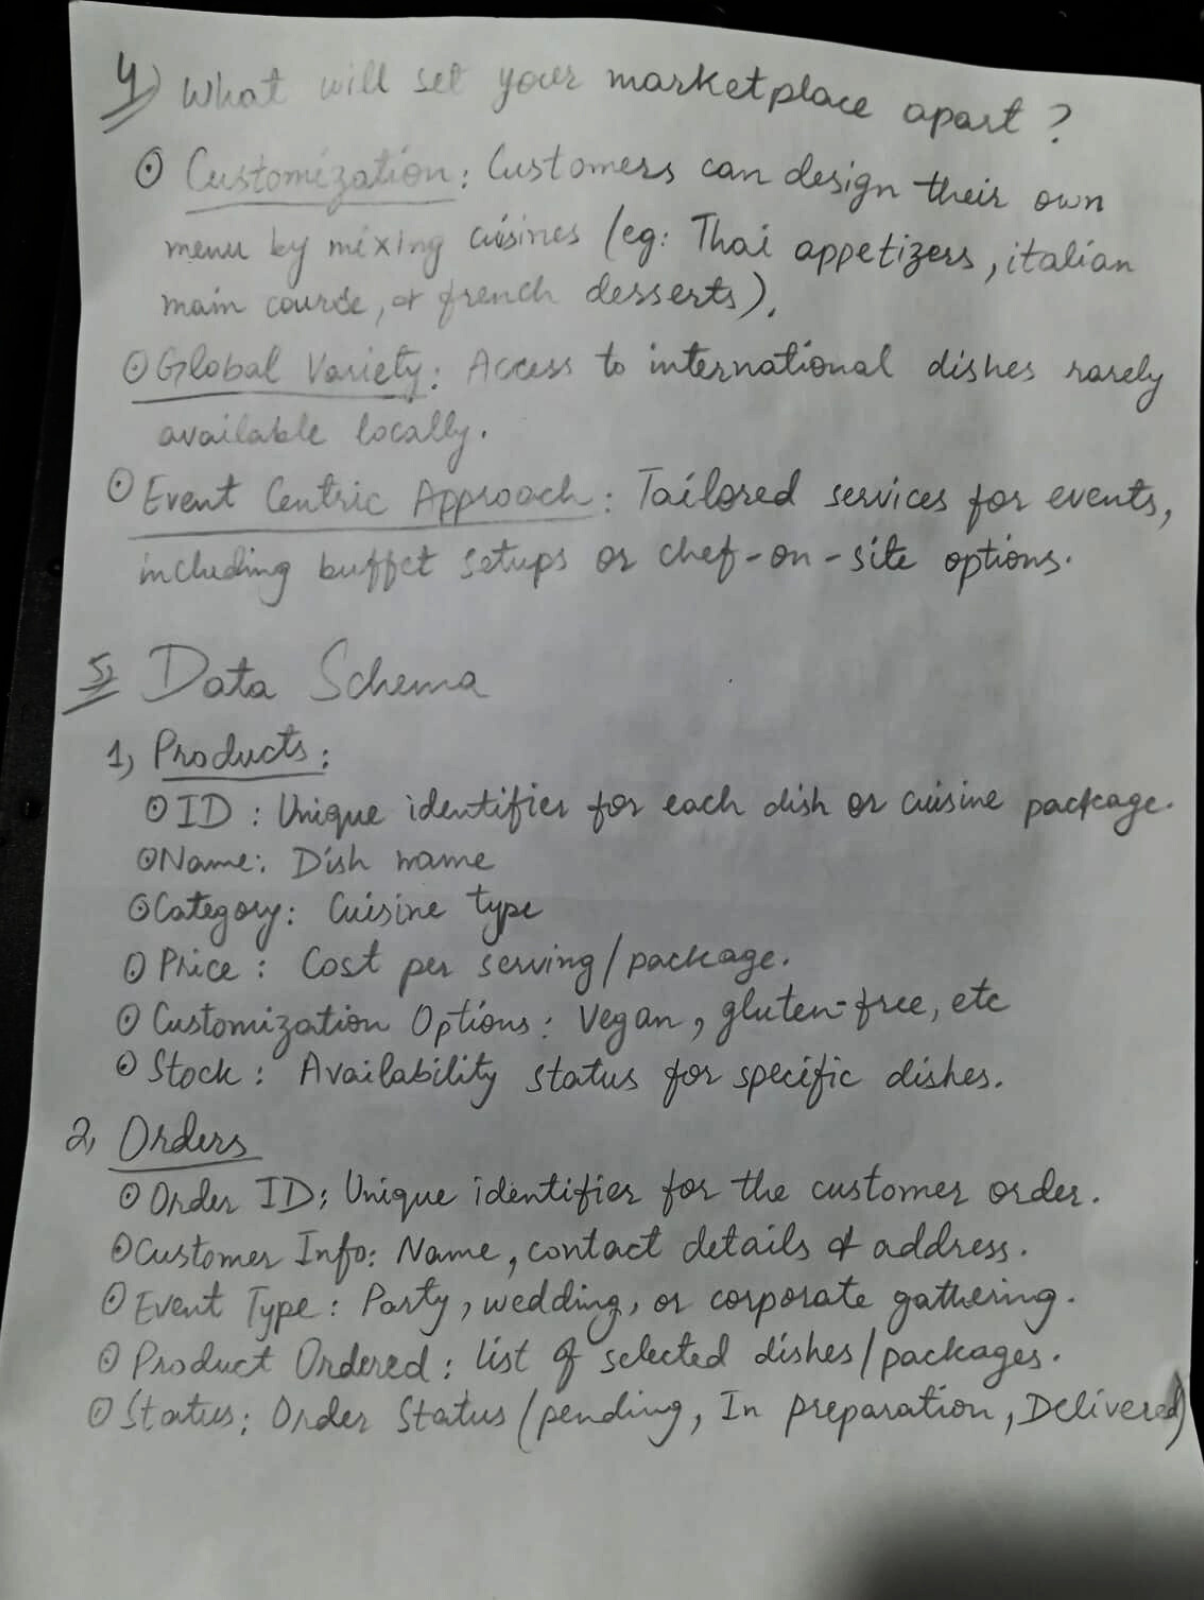 4) What will set your marketplace apart?
⊙ Customization: Customers can design their own
menu by mixing cuisines (eg: Thai appetizers, italian
main course, & french desserts).
⊙ Global Variety: Access to international dishes rarely
available locally.
⊙ Event Centric Approach: Tailored services for events,
including buffet setups or chef-on-site options.
5) Data Schema
1) Products:
⊙ ID : Unique identifier for each dish or cuisine package.
⊙ Name: Dish name
⊙ Category: Cuisine type
⊙ Price : Cost per serving/package.
⊙ Customization Options: Vegan, gluten-free, etc
⊙ Stock: Availability status for specific dishes.
2) Orders
⊙ Order ID: Unique identifier for the customer order.
⊙ Customer Info: Name, contact details & address.
⊙ Event Type: Party, wedding, or corporate gathering.
⊙ Product Ordered: list of selected dishes/packages.
⊙ Status: Order Status (pending, In preparation, Delivered)